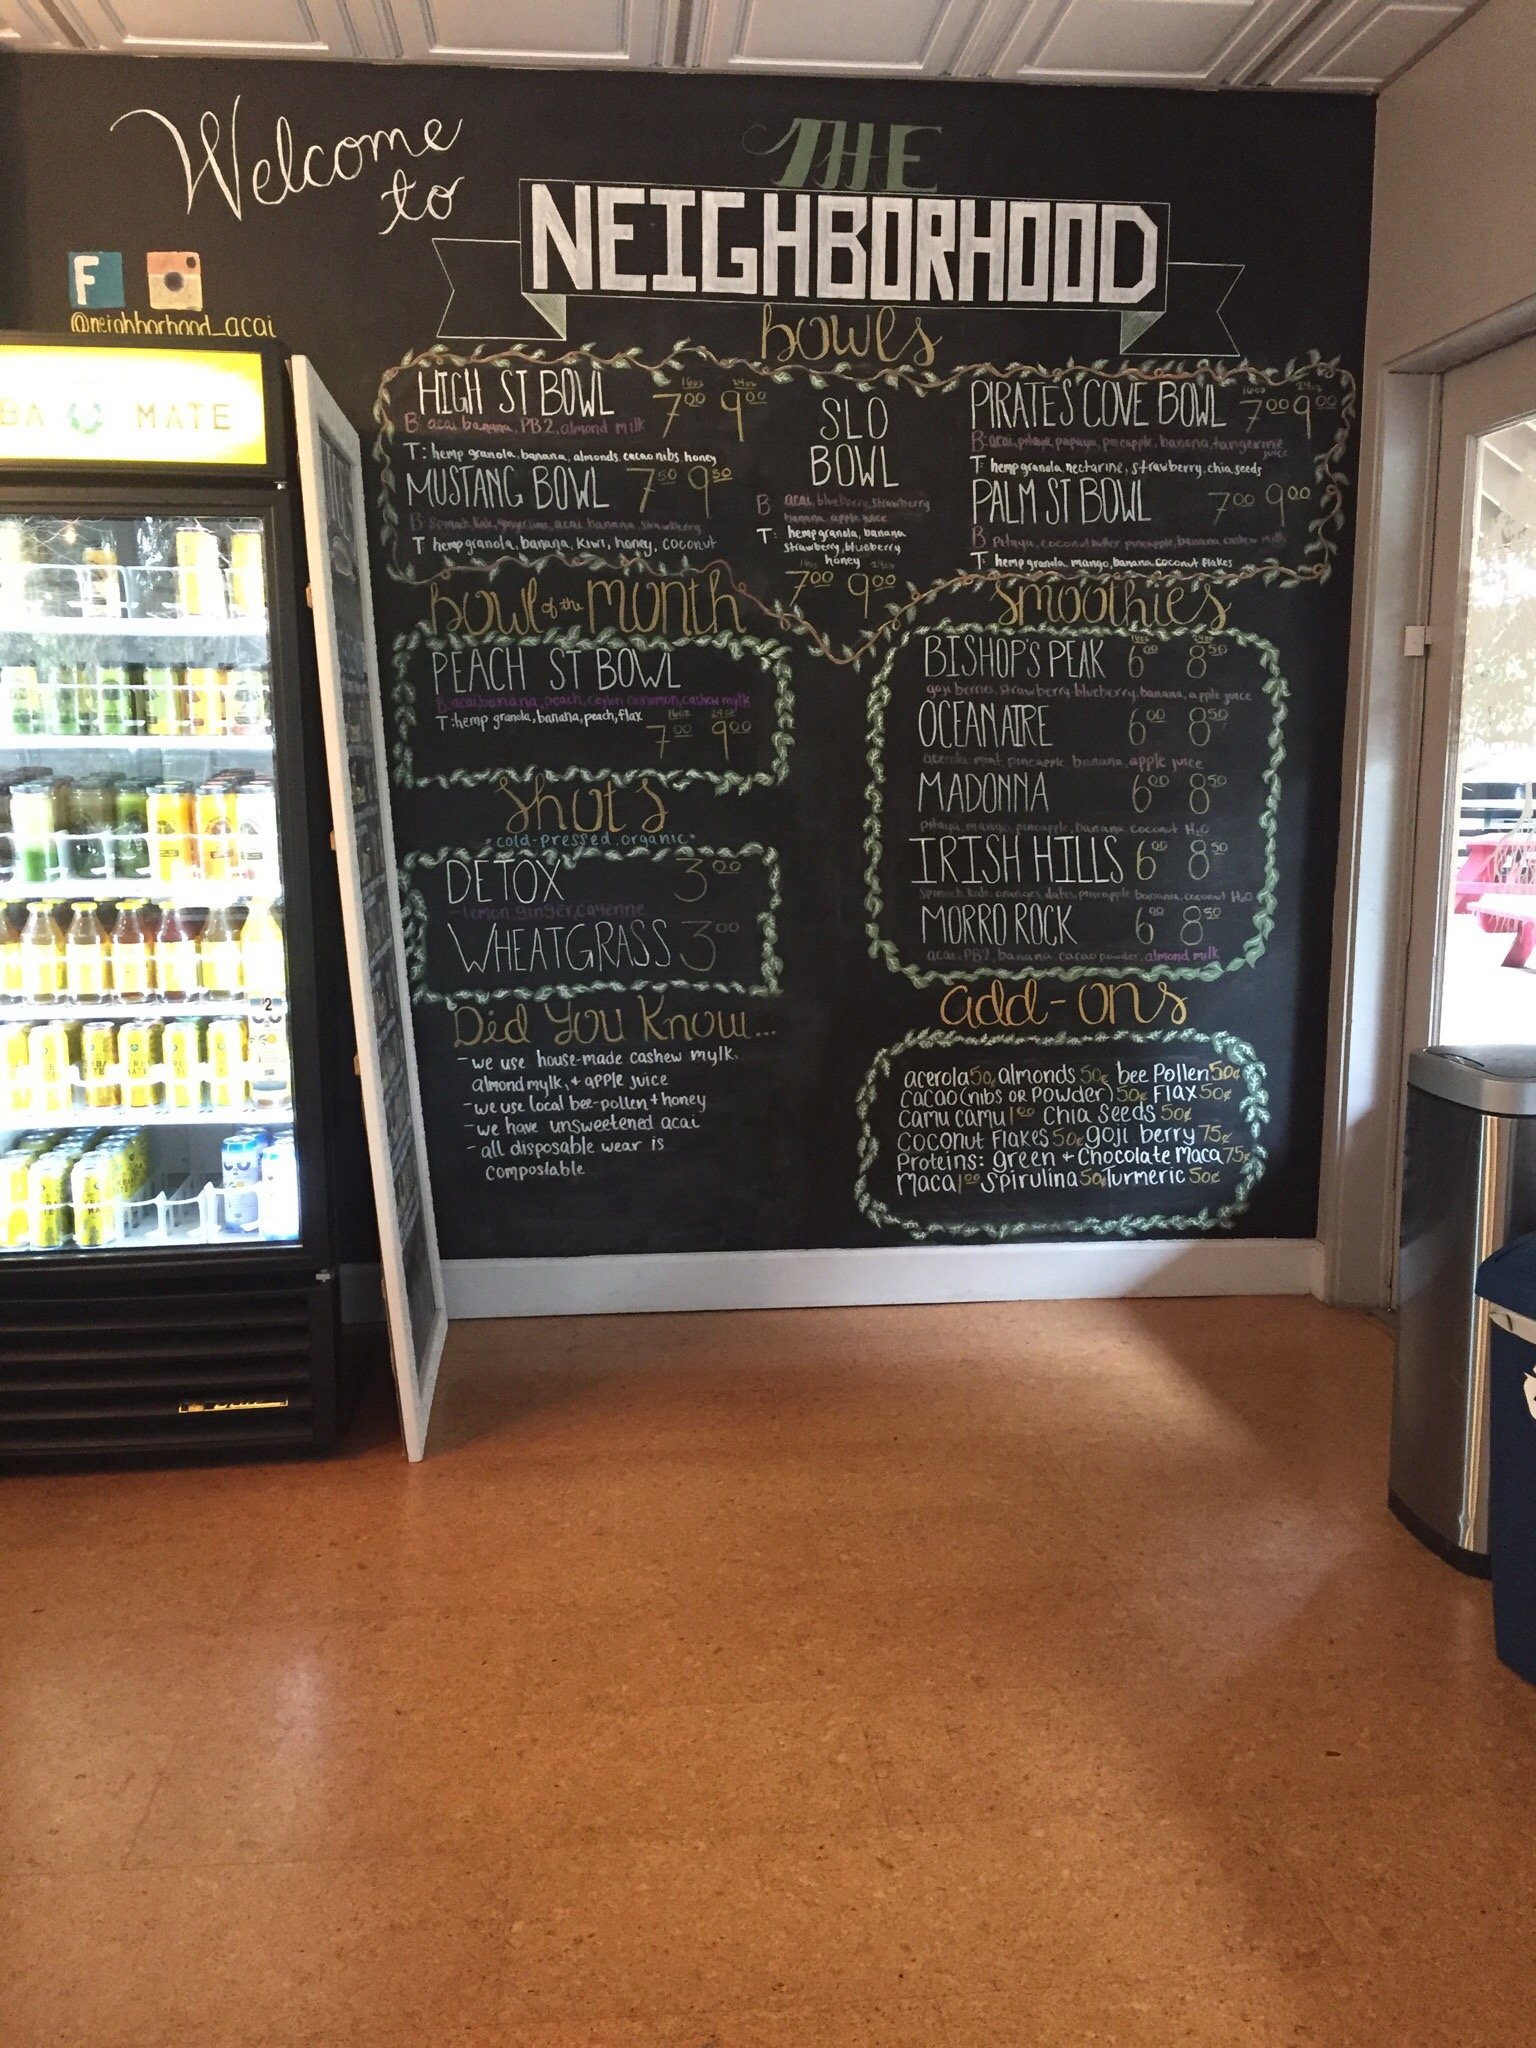 Welcome
to
THE
NEIGHBORHOOD
F
@neighborhood_acai
BA MATE
Bowls
HIGH ST BOWL 16oz 7.00 24oz 9.00
B: acai, banana, PB2, almond milk
T: hemp granola, banana, almonds, cacao nibs, honey
MUSTANG BOWL 7.50 9.50
B: spinach, kale, ginger, lime, acai, banana, strawberry
T: hemp granola, banana, kiwi, honey, coconut
SLO
BOWL
B: acai, blueberry, strawberry
banana, apple juice
T: hemp granola, banana,
strawberry, blueberry
honey
16oz 7.00 24oz 9.00
PIRATES COVE BOWL 16oz 7.00 24oz 9.00
B: acai, pitaya, papaya, pineapple, banana, tangerine
juice
T: hemp granola, nectarine, strawberry, chia seeds
PALM ST BOWL 7.00 9.00
B: pitaya, coconut butter, pineapple, banana, cashew mylk
T: hemp granola, mango, banana, coconut flakes
Bowl of the Month
PEACH ST BOWL
B: acai, banana, peach, ceylon cinnamon, cashew mylk
T: hemp granola, banana, peach, flax
16oz 7.00 24oz 9.00
Shots
•cold-pressed, organic•
DETOX 3.00
-lemon, ginger, cayenne
WHEATGRASS 3.00
Did You Know...
- we use house-made cashew mylk,
almond mylk, + apple juice
- we use local bee-pollen + honey
- we have unsweetened acai
- all disposable wear is
compostable
Smoothies
BISHOP'S PEAK 16oz 6.00 24oz 8.50
goji berries, strawberry, blueberry, banana, apple juice
OCEANAIRE 6.00 8.50
acerola, mint, pineapple, banana, apple juice
MADONNA 6.00 8.50
pitaya, mango, pineapple, banana, coconut H2O
IRISH HILLS 6.00 8.50
spinach, kale, oranges, dates, pineapple, banana, coconut H2O
MORRO ROCK 6.00 8.50
acai, PB2, banana, cacao powder, almond mylk
add-ons
acerola 50¢ almonds 50¢ bee Pollen 50¢
cacao (nibs or powder) 50¢ Flax 50¢
camu camu 1.00 chia seeds 50¢
coconut flakes 50¢ goji berry 75¢
Proteins: green + chocolate maca 75¢
Maca 1.00 spirulina 50¢ Turmeric 50¢